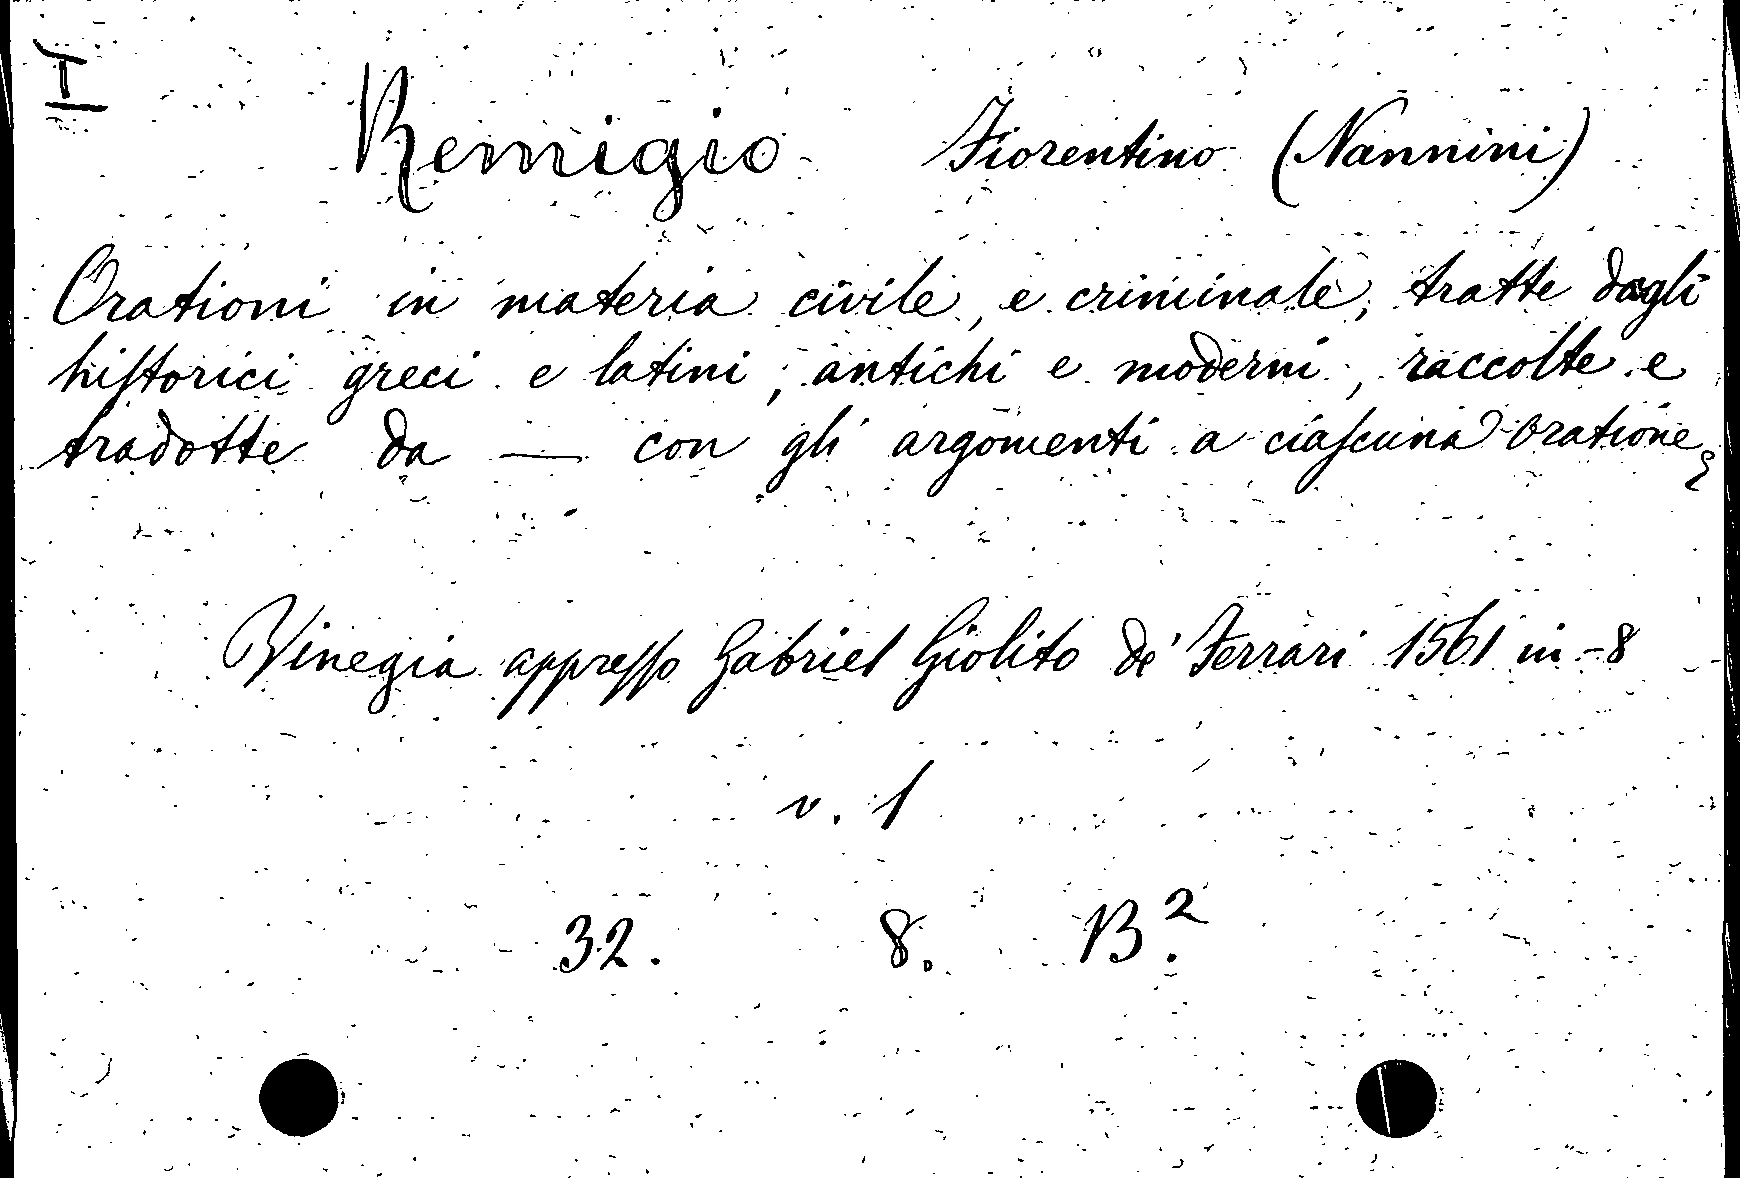 I
Remigio Fiorentino (Nannini)
Orationi in materia civile, e criminale, tratte dagli
hiſtorici greci e latini, antichi e moderni, raccolte e
tradotte da — con gli argomenti a ciaſcuna oratione,
Vinegia appreſſo Gabriel Giolito de' Ferrari 1561 in-8
v. 1
32. 8. B.²